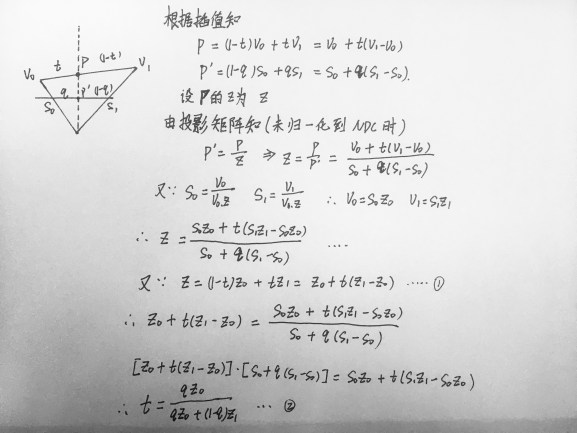 根据插值知
P = (1-t)V₀ + tV₁ = V₀ + t(V₁-V₀)
P' = (1-q)S₀ + qS₁ = S₀ + q(S₁-S₀).
设 P的Z为 Z
由投影矩阵知(未归一化到NDC时)
P' = P/Z ⇒ Z = P/P' = (V₀ + t(V₁-V₀))/(S₀ + q(S₁-S₀))
又∵ S₀ = V₀/V₀.z S₁ = V₁/V₀.z ∴ V₀=S₀Z₀ V₁=S₁Z₁
∴ Z = (S₀Z₀ + t(S₁Z₁-S₀Z₀))/(S₀ + q(S₁-S₀)) ....
又∵ Z = (1-t)Z₀ + tZ₁ = Z₀ + t(Z₁-Z₀) ..... ①
∴ Z₀ + t(Z₁-Z₀) = (S₀Z₀ + t(S₁Z₁-S₀Z₀))/(S₀ + q(S₁-S₀))
[Z₀+t(Z₁-Z₀)]·[S₀+q(S₁-S₀)] = S₀Z₀ + t(S₁Z₁-S₀Z₀)
∴ t = qZ₀/(qZ₀+(1-q)Z₁) ... ②
V₀ t P (1-t) V₁
S₀ q P' (1-q) S₁